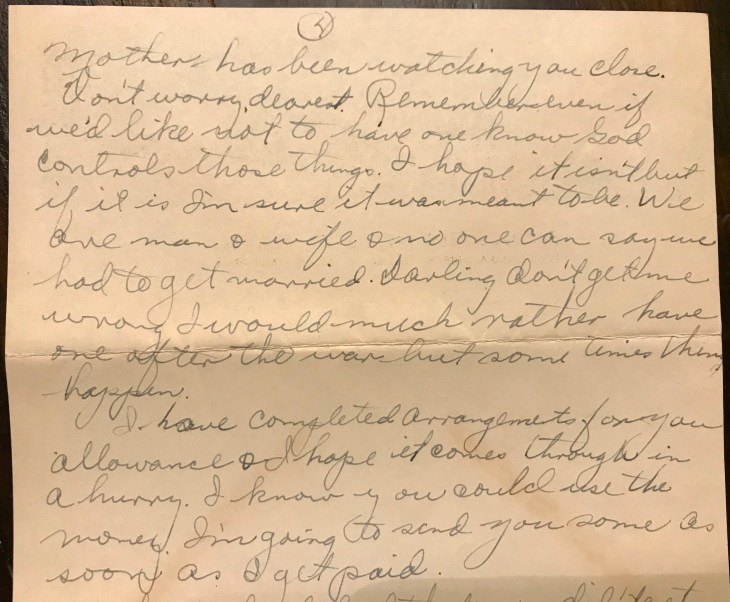 4
Mother has been watching you close.
Don't worry, dearest. Remember even if
we'd like not to have one know God
controls those things. I hope it isn't but
if it is I'm sure it was meant to be. We
are man & wife & no one can say we
had to get married. Darling don't get me
wrong I would much rather have
one after the war but some times things
happen.
I have completed arrangements for you
allowance & I hope it comes through in
a hurry. I know you could use the
money. I'm going to send you some as
soon as I get paid.